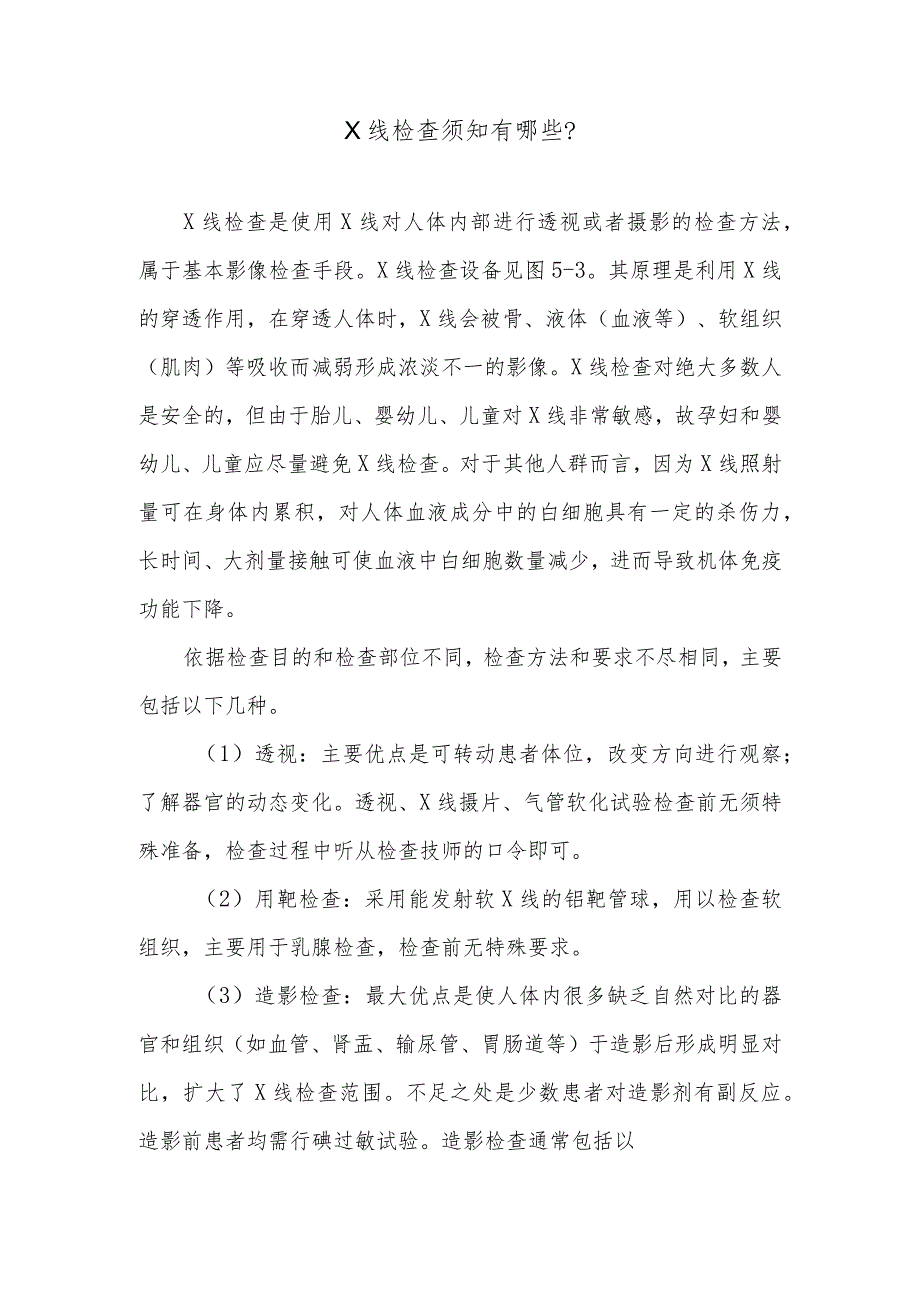 X 线检查须知有哪些?
X 线检查是使用 X 线对人体内部进行透视或者摄影的检查方法，
属于基本影像检查手段。X 线检查设备见图 5-3。其原理是利用 X 线
的穿透作用，在穿透人体时，X 线会被骨、液体（血液等）、软组织
（肌肉）等吸收而减弱形成浓淡不一的影像。X 线检查对绝大多数人
是安全的，但由于胎儿、婴幼儿、儿童对 X 线非常敏感，故孕妇和婴
幼儿、儿童应尽量避免 X 线检查。对于其他人群而言，因为 X 线照射
量可在身体内累积，对人体血液成分中的白细胞具有一定的杀伤力，
长时间、大剂量接触可使血液中白细胞数量减少，进而导致机体免疫
功能下降。
依据检查目的和检查部位不同，检查方法和要求不尽相同，主要
包括以下几种。
（1）透视：主要优点是可转动患者体位，改变方向进行观察；
了解器官的动态变化。透视、X 线摄片、气管软化试验检查前无须特
殊准备，检查过程中听从检查技师的口令即可。
（2）用靶检查：采用能发射软 X 线的铝靶管球，用以检查软
组织，主要用于乳腺检查，检查前无特殊要求。
（3）造影检查：最大优点是使人体内很多缺乏自然对比的器
官和组织（如血管、肾盂、输尿管、胃肠道等）于造影后形成明显对
比，扩大了 X 线检查范围。不足之处是少数患者对造影剂有副反应。
造影前患者均需行碘过敏试验。造影检查通常包括以